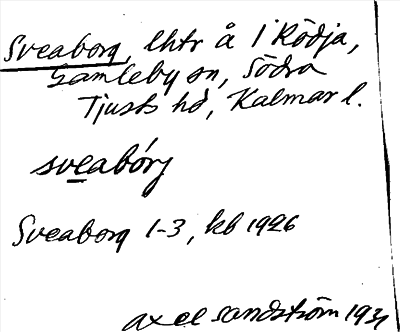 Sveaborg, lhtr å 1 Rödja,
Gamleby sn, Södra
Tjusts hd, Kalmar l.
sveabórg
Sveaborg 1-3, kb 1926
Axel Sandström